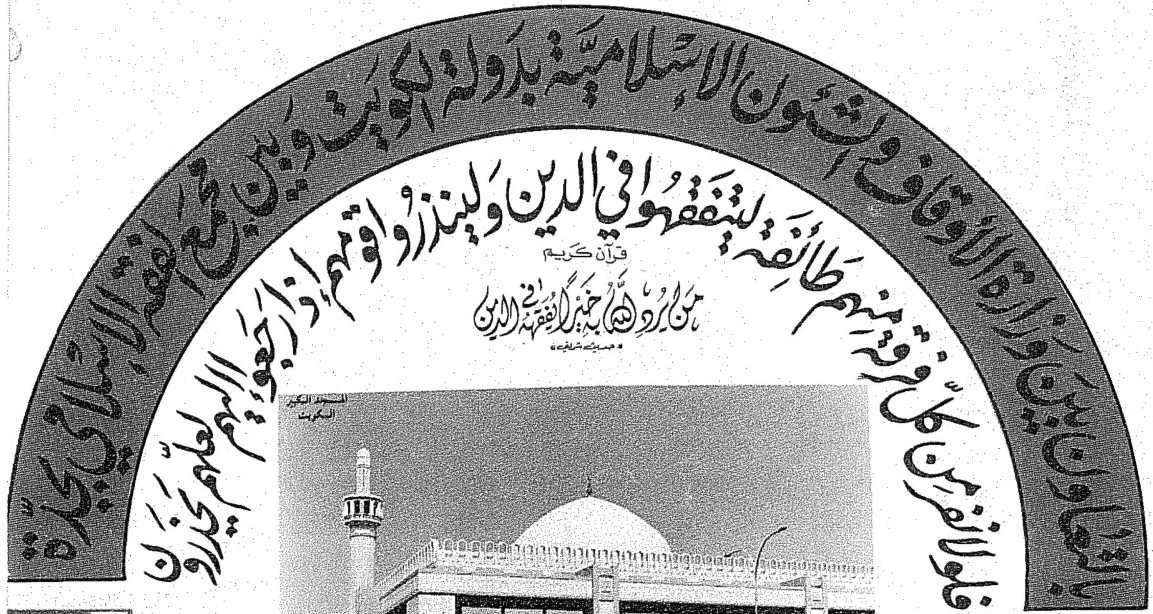 بالتعاون بين وزارة الأوقاف والشئون الإسلامية بدولة الكويت وبين مجمع الفقه الإسلامي بجدة
فلولا نفر من كلّ فرقة منهم طائفة ليتفقهوا في الدين ولينذروا قومهم إذا رجعوا إليهم لعلّهم يحذرون
قرآن كريم
من يرد الله به خيرًا يفقهه في الدين
حديث شريف
المسجد الكبير
الكويت